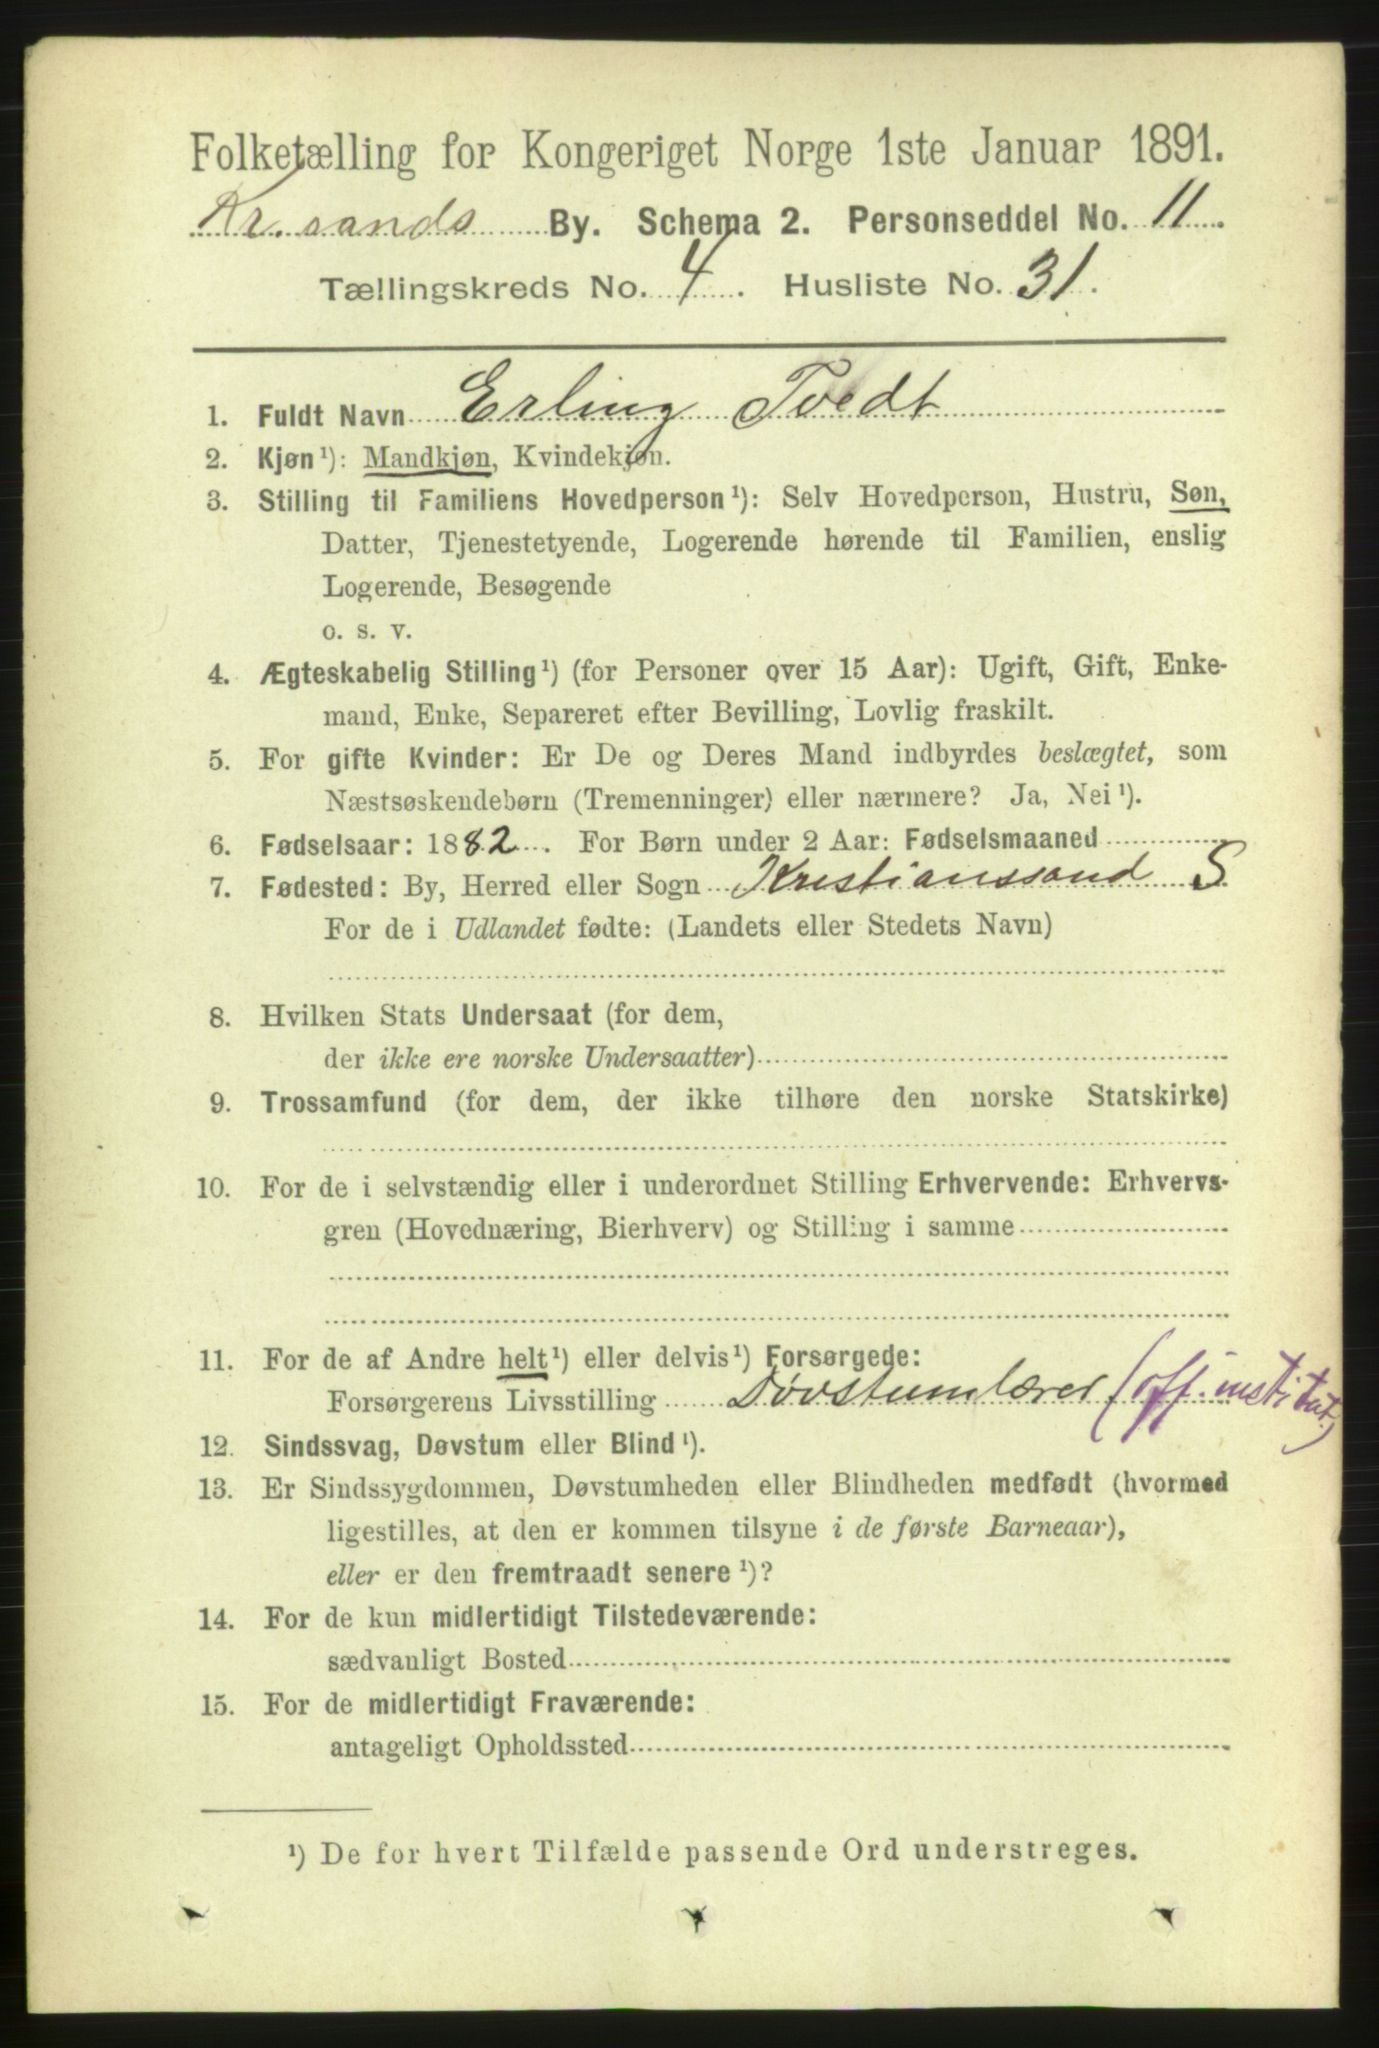 Folketælling for Kongeriget Norge 1ste Januar 1891.
Kr.sands By. Schema 2. Personseddel No. 11.
Tællingskreds No. 4. Husliste No. 31.
1. Fuldt Navn Erling Tvedt
2. Kjøn¹): Mandkjøn, Kvindekjøn.
3. Stilling til Familiens Hovedperson¹): Selv Hovedperson, Hustru, Søn,
Datter, Tjenestetyende, Logerende hørende til Familien, enslig
Logerende, Besøgende
o. s. v.
4. Ægteskabelig Stilling¹) (for Personer over 15 Aar): Ugift, Gift, Enke-
mand, Enke, Separeret efter Bevilling, Lovlig fraskilt.
5. For gifte Kvinder: Er De og Deres Mand indbyrdes beslægtet, som
Næstsøskendebørn (Tremenninger) eller nærmere? Ja, Nei¹).
6. Fødselsaar: 1882. For Børn under 2 Aar: Fødselsmaaned
7. Fødested: By, Herred eller Sogn Kristianssand S
For de i Udlandet fødte: (Landets eller Stedets Navn)
8. Hvilken Stats Undersaat (for dem,
der ikke ere norske Undersaatter)
9. Trossamfund (for dem, der ikke tilhøre den norske Statskirke)
10. For de i selvstændig eller i underordnet Stilling Erhvervende: Erhvervs-
gren (Hovednæring, Bierhverv) og Stilling i samme
11. For de af Andre helt¹) eller delvis¹) Forsørgede:
Forsørgerens Livsstilling Døvstumlærer (off. institut.)
12. Sindssvag, Døvstum eller Blind¹).
13. Er Sindssygdommen, Døvstumheden eller Blindheden medfødt (hvormed
ligestilles, at den er kommen tilsyne i de første Barneaar),
eller er den fremtraadt senere¹)?
14. For de kun midlertidigt Tilstedeværende:
sædvanligt Bosted
15. For de midlertidigt Fraværende:
antageligt Opholdssted
¹) De for hvert Tilfælde passende Ord understreges.